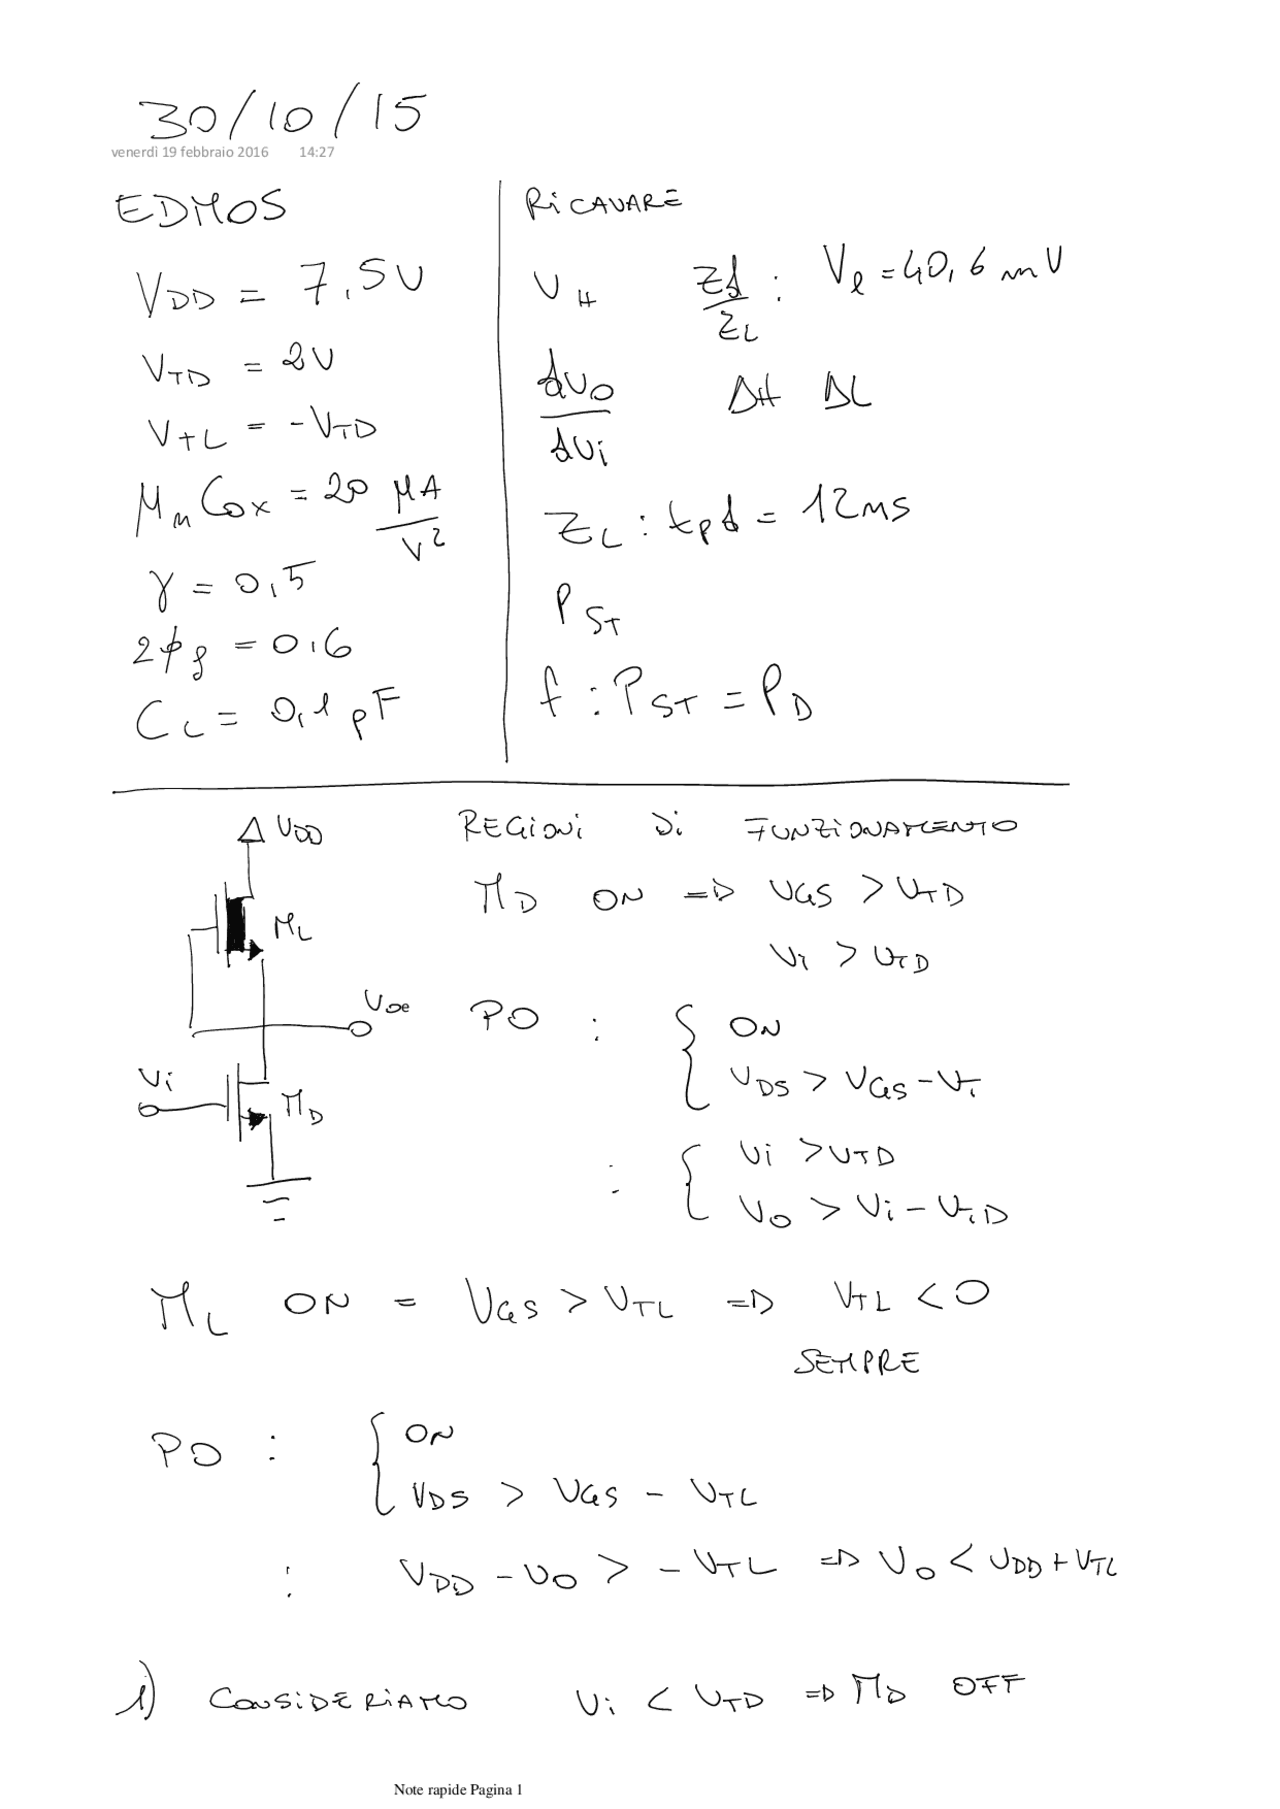 30/10/15
venerdì 19 febbraio 2016 14:27
EDMOS
VDD = 7,5V
VTD = 2V
VTL = -VTD
μn Cox = 20 μA/V²
γ = 0,5
2φf = 0,6
CL = 0,1 pF
RiCAVARE
VH Zd/ZL : Vl = 40,6 mV
dvo/dvi ΔH ΔL
ZL : tpd = 12ns
PST
f : PST = PD
VDD
ML
Voe
Vi
MD
REGiONi Di FUNZiONAMENTO
MD ON => VGS > VTD
Vi > VTD
PO : { ON
VDS > VGS - VT
: { Vi > VTD
VO > Vi - VTD
ML ON = VGS > VTL => VTL < 0
SEMPRE
PO : { ON
VDS > VGS - VTL
: VDD - VO > - VTL => VO < VDD + VTL
1) CONSiDERiAMO Vi < VTD => MD OFF
Note rapide Pagina 1